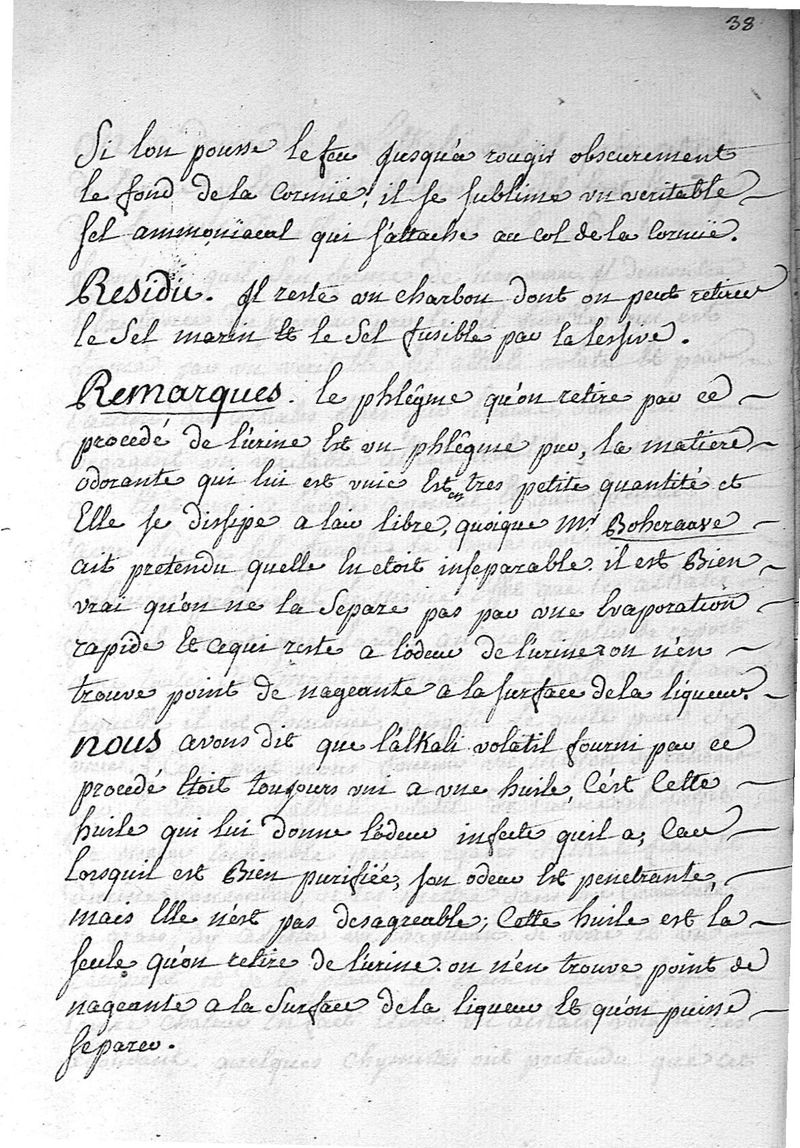 38
Si lon pousse le feu jusqu'a rougir obscurement
le fond de la Cornuë, il se sublime un veritable
sel ammoniacal qui s'attache au Col de la Cornuë.
Residu. Il reste un charbon dont on peut retirer
le Sel marin Et le Sel fusible par la lessive.
Remarques. le phlêgme qu'on retire par ce
procedé de l'urine Est un phlêgme pur, la matiere
odorante qui lui est unie Est en tres petite quantité et
Elle se dissipe a l'air libre, quoique Mr. Boheraave
ait pretendu quelle lu etoit inseparable. il est Bien
vrai qu'on ne la Separe pas par une Evaporation
rapide Et ce qui reste a l'odeur de l'urine on n'en
trouve point de nageante a la surface de la liqueur.
nous avons dit que l'alkali volatil fourni par ce
procedé Etoit toujours uni a une huile, C'est Cette
huile qui lui donne l'odeur infecte quil a, Car
lorsquil est Bien purifiée, son odeur Est penetrante,
mais Elle n'est pas desagreable; Cette huile est la
seule qu'on retire de l'urine. on n'en trouve point de
nageante a la Surface de la liqueur Et qu'on puisse
séparer.